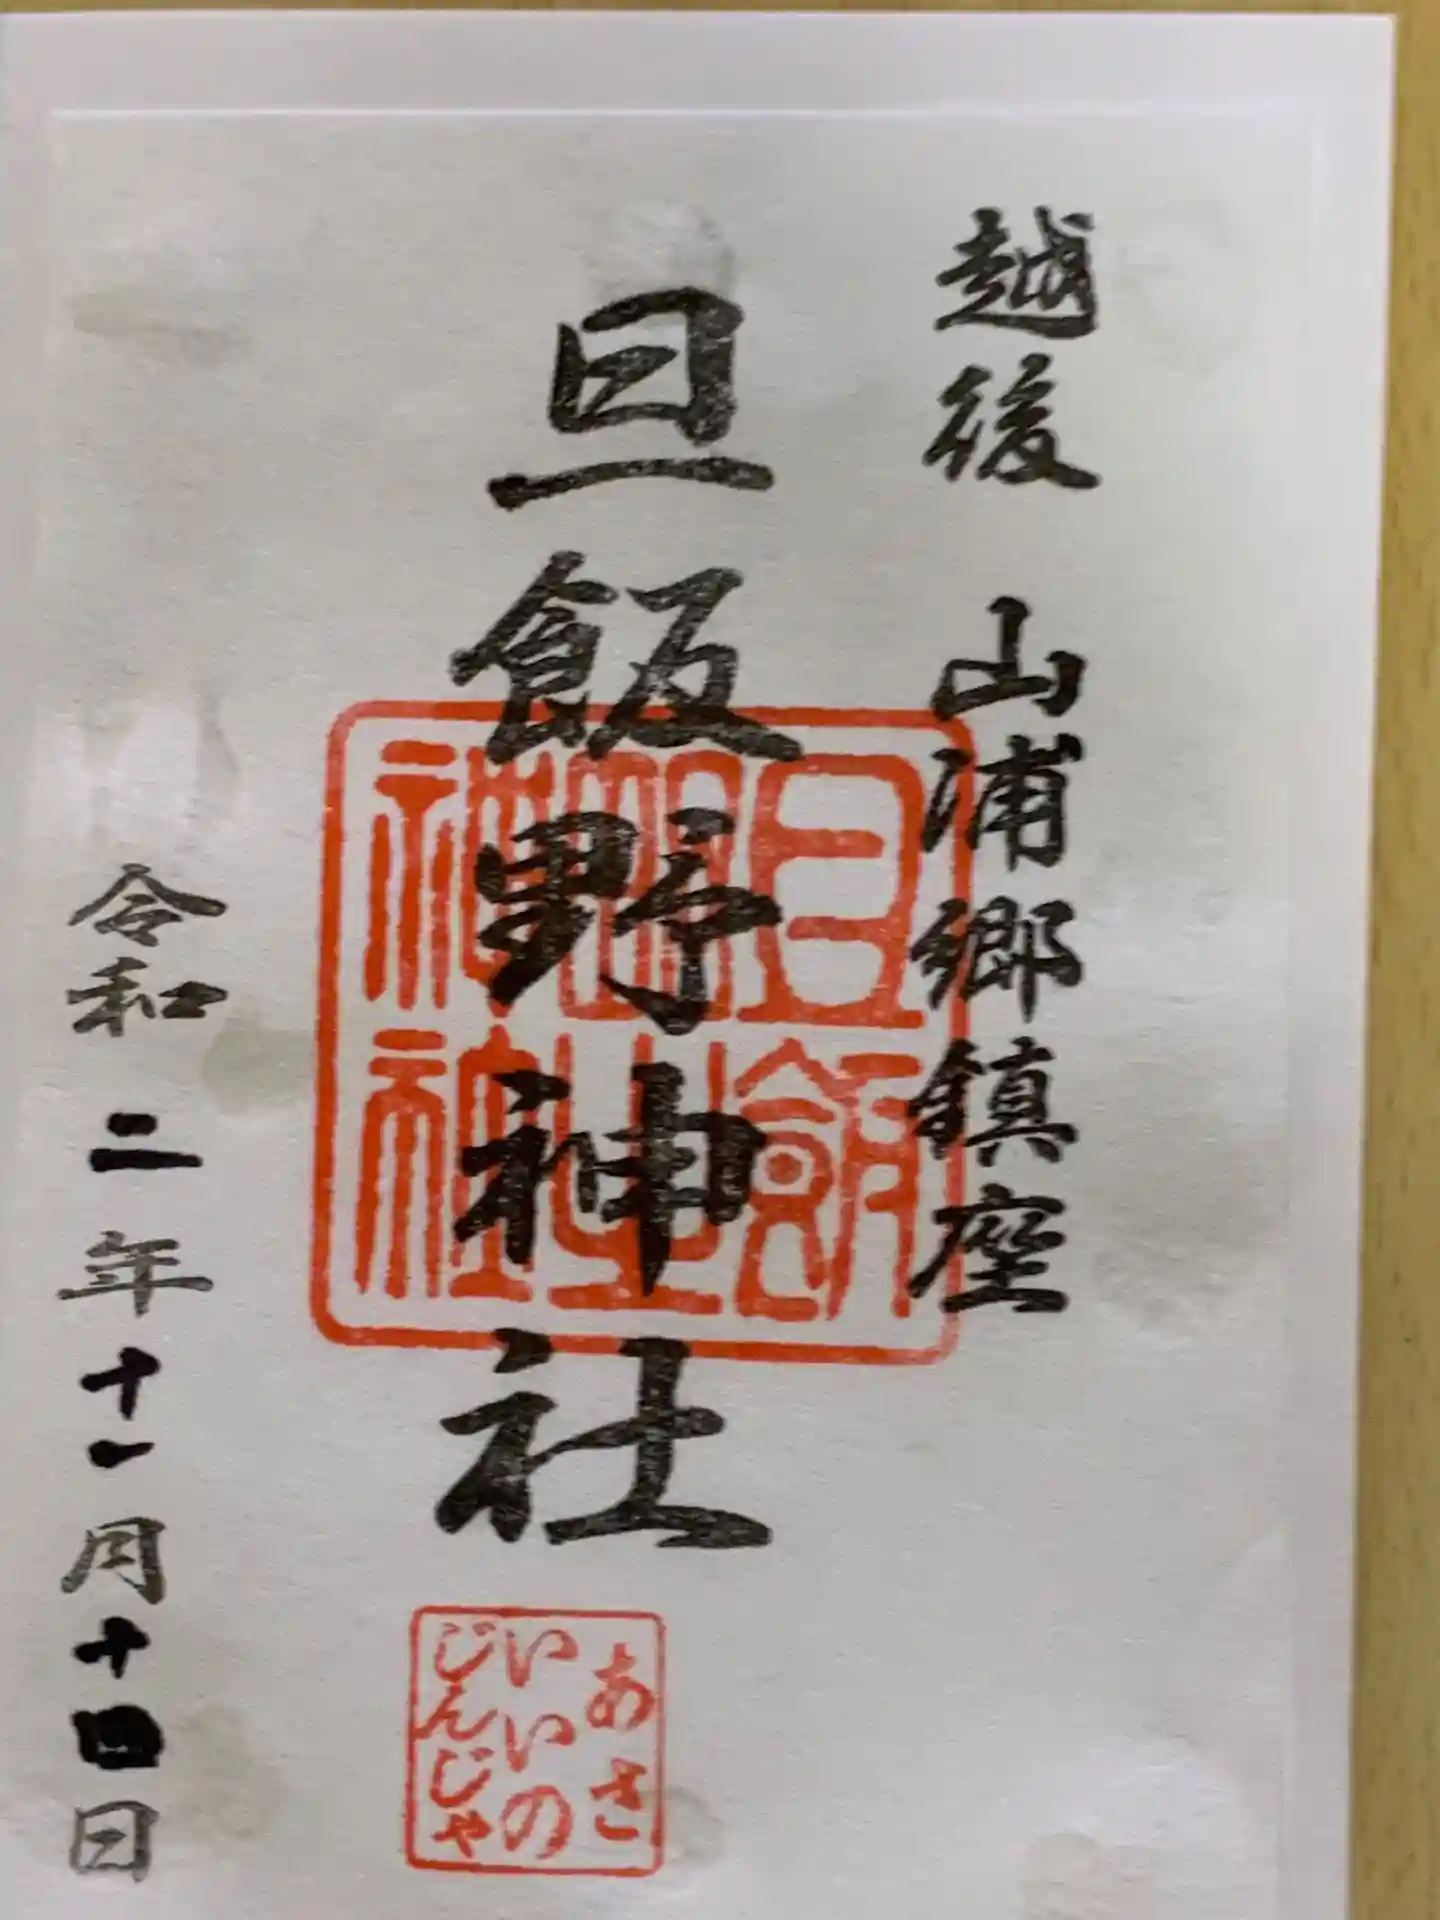 越後 山浦郷鎮座
旦飯野神社
旦飯
野
神社
あさ
いいの
じんじゃ
令和二年十一月十四日